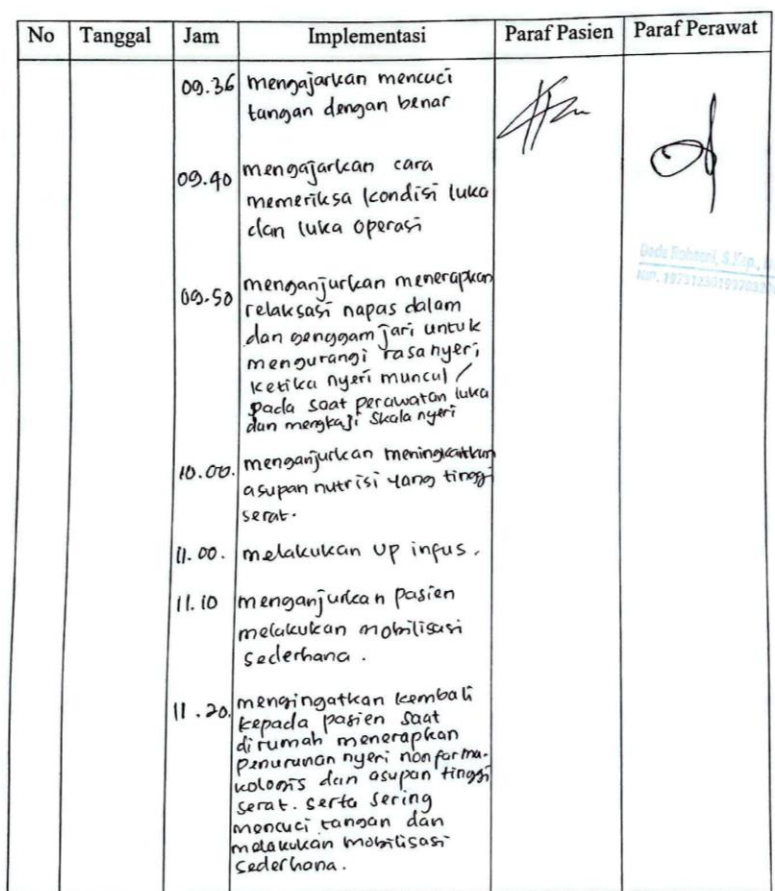 No Tanggal Jam Implementasi Paraf Pasien Paraf Perawat
09.36 mengajarkan mencuci
tangan dengan benar
09.40 mengajarkan cara
memeriksa kondisi luka
dan luka operasi
09.50 menganjurkan menerapkan
relaksasi napas dalam
dan genggam jari untuk
mengurangi rasa nyeri,
ketika nyeri muncul /
pada saat perawatan luka
dan mengkaji skala nyeri
10.00. menganjurkan meningkatkan
asupan nutrisi yang tinggi
serat.
11.00. melakukan up infus.
11.10 menganjurkan pasien
melakukan mobilisasi
sederhana.
11.20. mengingatkan kembali
kepada pasien saat
dirumah menerapkan
penurunan nyeri nonforma-
kologis dan asupan tinggi
serat. serta sering
mencuci tangan dan
melakukan mobilisasi
sederhana.